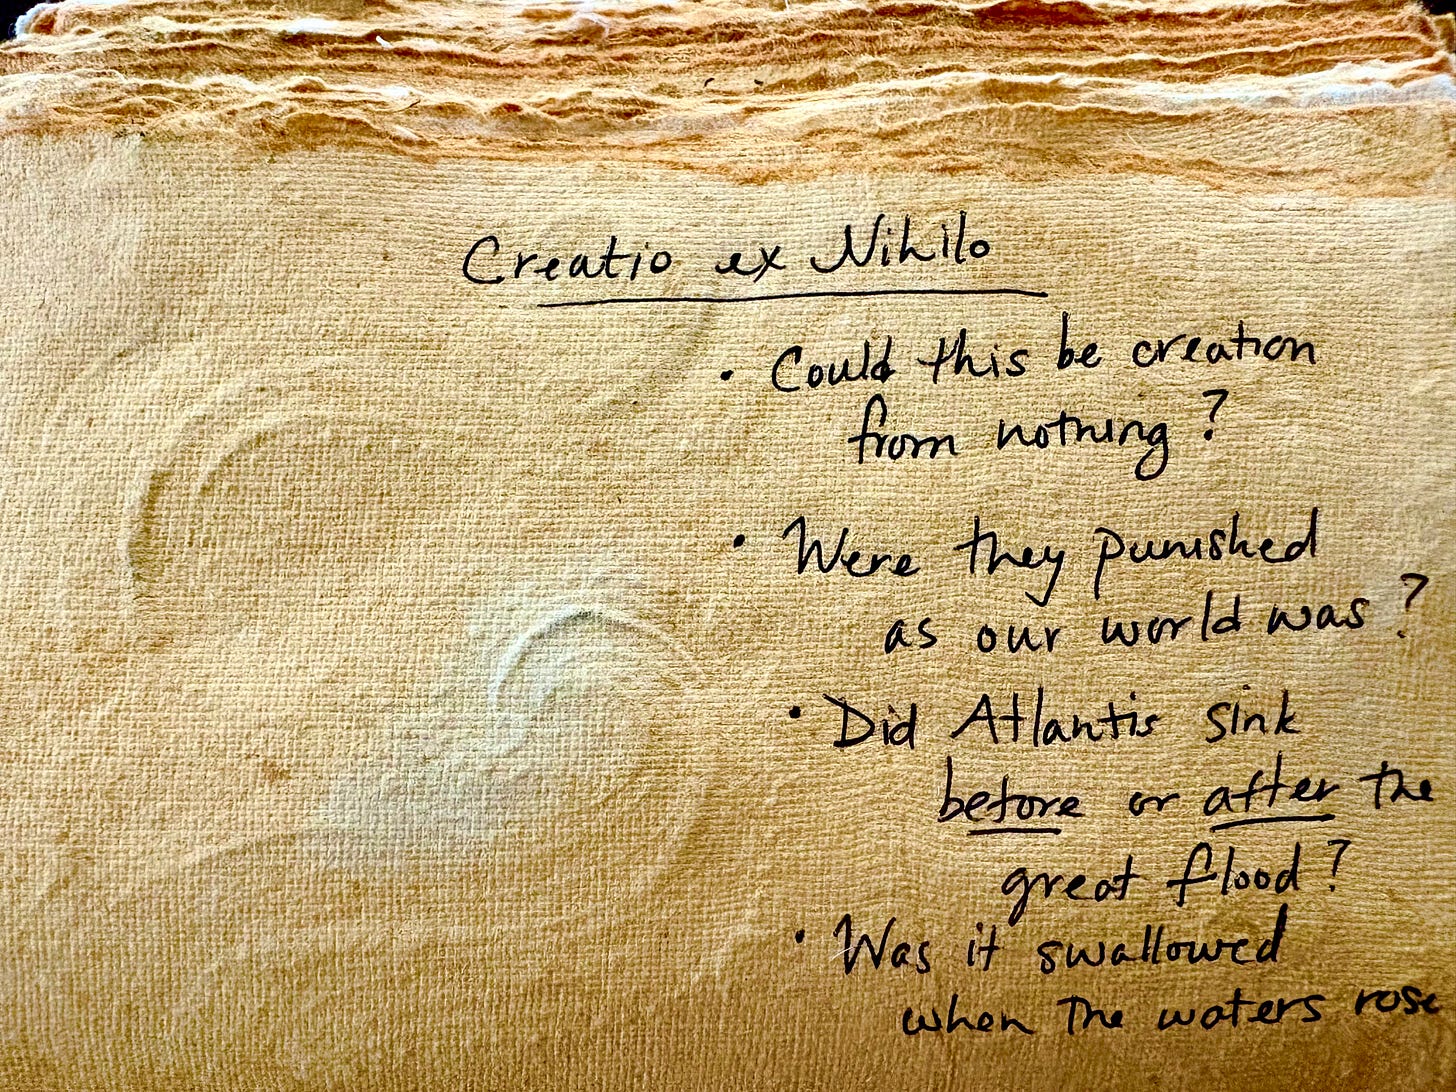 Creatio ex Nihilo
• Could this be creation
from nothing?
• Were they punished
as our world was?
• Did Atlantis sink
before or after the
great flood?
• Was it swallowed
when the waters rose